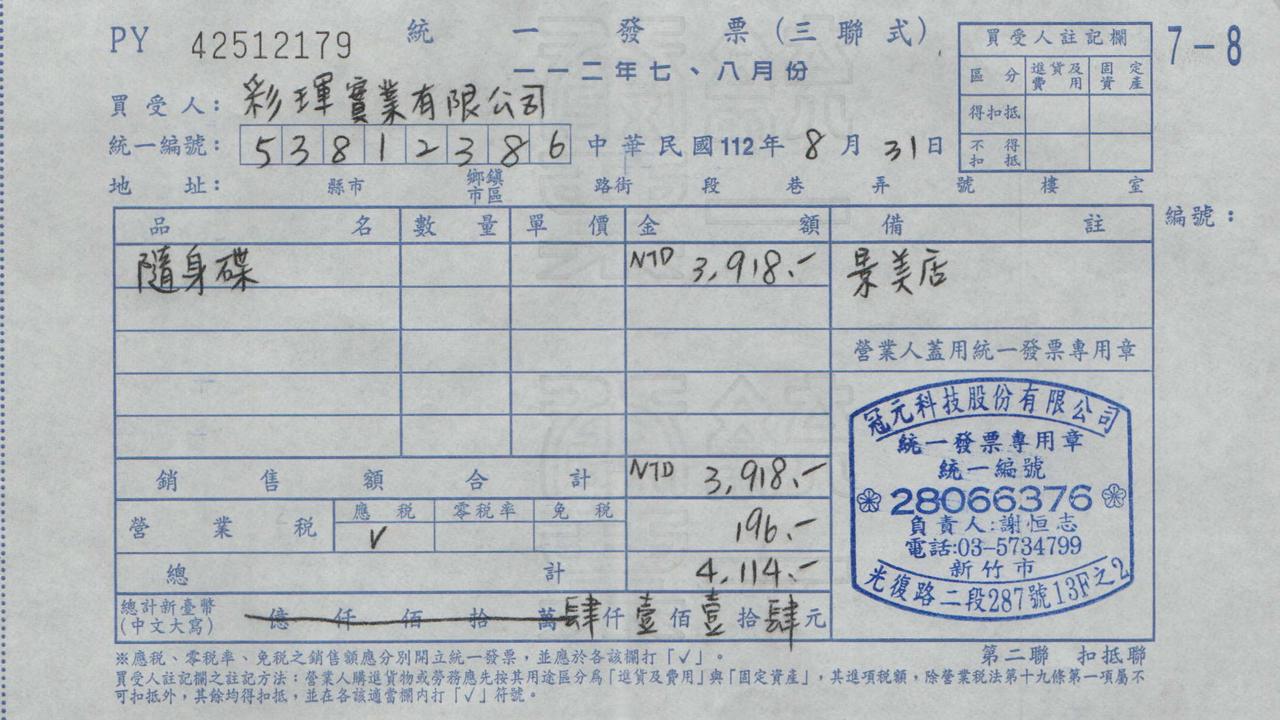 PY 42512179 統一發票(三聯式)
一一二年七、八月份
7-8
買受人註記欄
區分 進貨及費用 固定資產
得扣抵
不得扣抵
買受人: 彩琿實業有限公司
統一編號: 53812386 中華民國112年8月31日
地址: 縣市 鄉鎮市區 路街 段 巷 弄 號 樓 室
品名 數量 單價 金額 備註 編號:
隨身碟 NTD 3,918.- 景美店
營業人蓋用統一發票專用章
銷售額合計 NTD 3,918.-
營業稅 應稅 零稅率 免稅 196.-
✓
總計 4,114.-
總計新臺幣(中文大寫) 億仟佰拾萬肆仟壹佰壹拾肆元
冠元科技股份有限公司
統一發票專用章
統一編號
28066376
負責人:謝恒志
電話:03-5734799
新竹市
光復路二段287號13F之2
第二聯 扣抵聯
※應稅、零稅率、免稅之銷售額應分別開立統一發票,並應於各該欄打「✓」。
買受人註記欄之註記方法:營業人購進貨物或勞務應先按其用途區分為「進貨及費用」與「固定資產」,其進項稅額,除營業稅法第十九條第一項屬不
可扣抵外,其餘均得扣抵,並在各該適當欄內打「✓」符號。